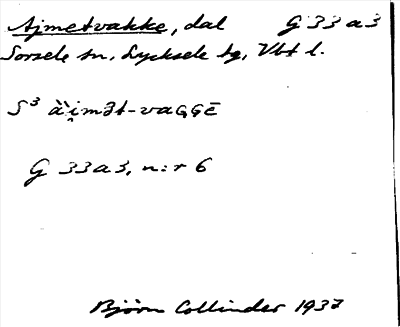 Ajmetvakke, dal G 33 a 3
Sorsele sn, Lycksele tg, Vbt l.
S³ ài̯mət-vaGGē
G 33 a 3, n:r 6
Björn Collinder 1937